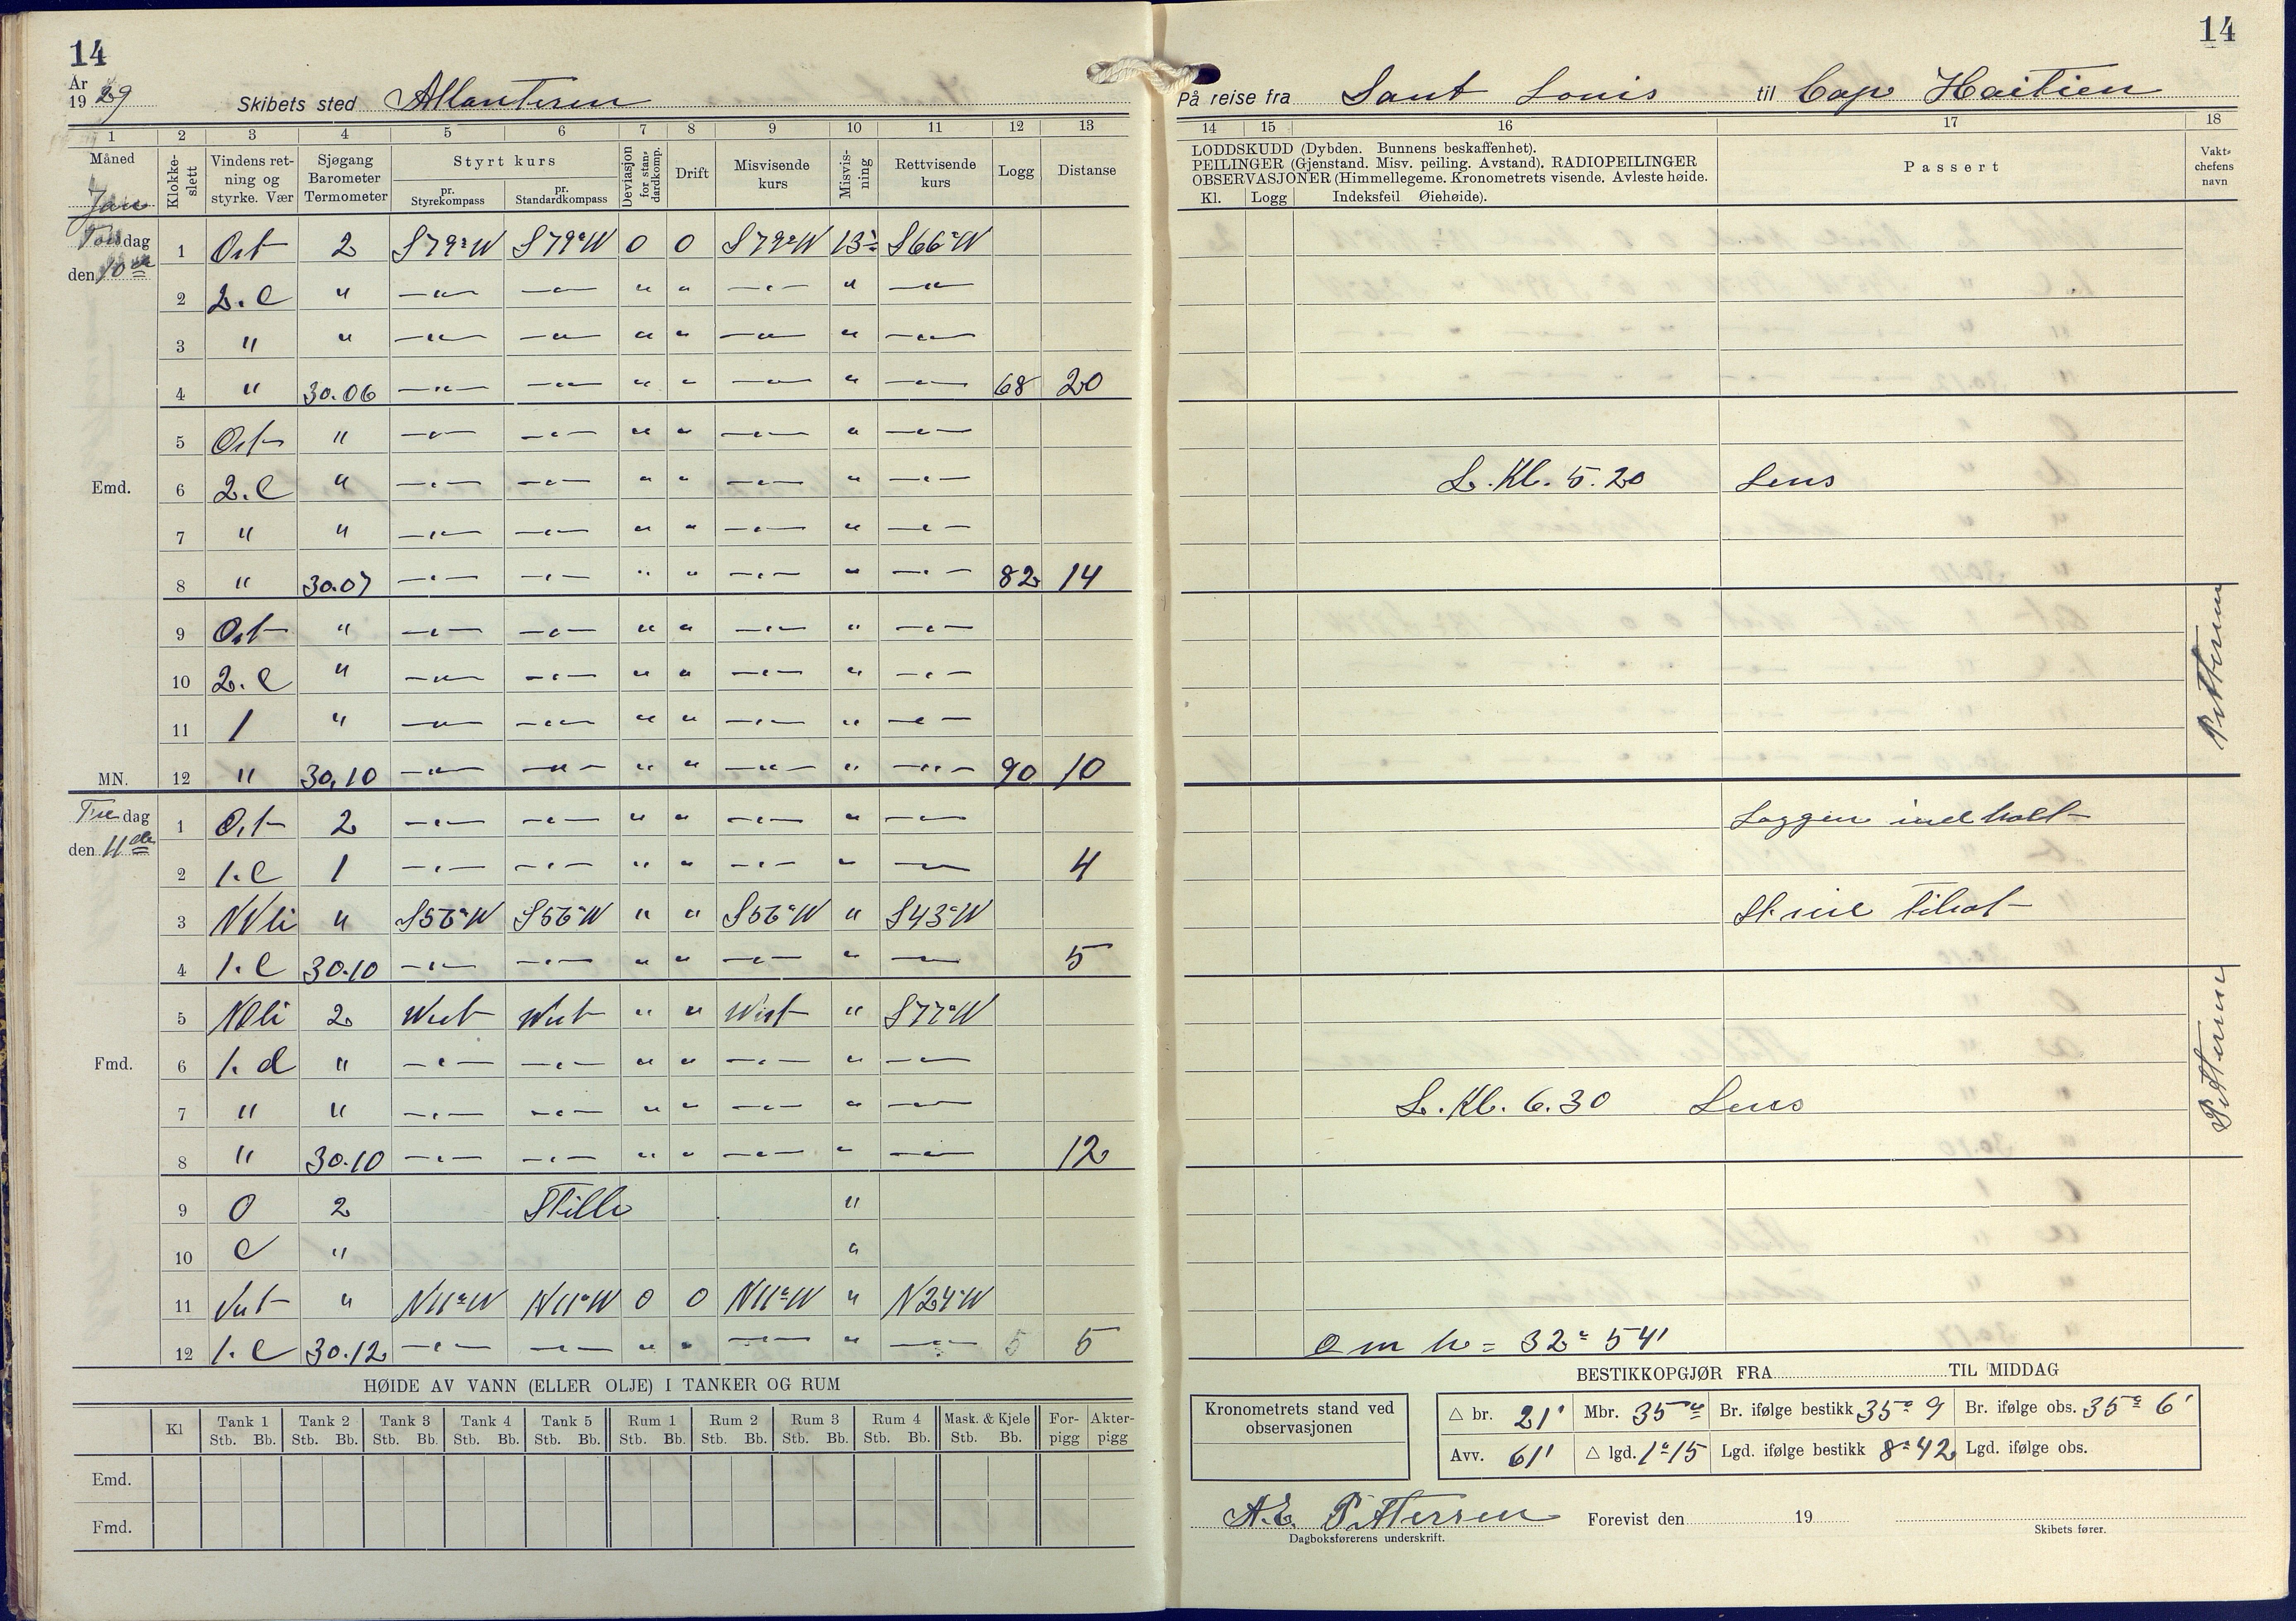 14
År
19 29 Skibets sted Atlanteren
1 2 3 4 5 6 7 8 9 10 11 12 13
Måned Klokkeslett Vindens retning og styrke. Vær Sjøgang Barometer Termometer Styrt kurs pr. Styrekompass pr. Standardkompass Deviasjon for standardkomp. Drift Misvisende kurs Misvisning Rettvisende kurs Logg Distanse
Jan
dag 1 Ost 2 S79°W S79°W 0 0 S79°W 13° S66°W
den 10de
2 2.C " —"— —"— " " —"— " —"—
3 " " —"— —"— " " —"— " —"—
4 " 30.06 —"— —"— " " —"— " —"— 68 20
5 Ost " —"— —"— " " —"— " —"—
Emd. 6 2.C " —"— —"— " " —"— " —"—
7 " " —"— —"— " " —"— " —"—
8 " 30.07 —"— —"— " " —"— " —"— 82 14
9 Ost " —"— —"— " " —"— " —"—
10 2.C " —"— —"— " " —"— " —"—
11 1 " —"— —"— " " —"— " —"—
MN. 12 " 30.10 —"— —"— " " —"— " —"— 90 10
Fredag 1 Ost 2 —"— —"— " " —"— " —"—
den 11de
2 1.C 1 —"— —"— " " —"— " —"— 4
3 NVli " S56°W S56°W " " S56°W " S43°W
4 1.C 30.10 —"— —"— " " —"— " —"— 5
5 NOli 2 West West " " West " S77°W
Fmd. 6 1.d " —"— —"— " " —"— " —"—
7 " " —"— —"— " " —"— " —"—
8 " 30.10 —"— —"— " " —"— " —"— 12
9 0 2 Stille "
10 C " "
11 Vest " N11°W N11°W 0 0 N11°W " N24°W
12 1.C 30.12 —"— —"— " " —"— " —"— 5 5
HØIDE AV VANN (ELLER OLJE) I TANKER OG RUM
Kl Tank 1 Tank 2 Tank 3 Tank 4 Tank 5 Rum 1 Rum 2 Rum 3 Rum 4 Mask. & Kjele For-pigg Akter-pigg
Stb. Bb. Stb. Bb. Stb. Bb. Stb. Bb. Stb. Bb. Stb. Bb. Stb. Bb. Stb. Bb. Stb. Bb. Stb. Bb.
Emd.
Fmd.
14
På reise fra Sant Louis til Cap Haitien
14 15 16 17 18
LODDSKUDD (Dybden. Bunnens beskaffenhet).
PEILINGER (Gjenstand. Misv. peiling. Avstand). RADIOPEILINGER
OBSERVASJONER (Himmellegeme. Kronometrets visende. Avleste høide.
Kl. Logg Indeksfeil Øiehøide).
Passert
Vaktchefens navn
L. Kl. 5.20 Lens
Pettersen
Loggen indhalt
St. seil tilsat
L. Kl. 6.30 Lens
Pettersen
O m h = 32° 54'
BESTIKKOPGJØR FRA TIL MIDDAG
Kronometrets stand ved observasjonen
△ br. 21' Mbr. 35° Br. ifølge bestikk 35° 9 Br. ifølge obs. 35° 6'
Avv. 61' △ lgd. 1°15 Lgd. ifølge bestikk 8°42 Lgd. ifølge obs.
A.E. Pettersen Forevist den 19
Dagboksførerens underskrift. Skibets fører.